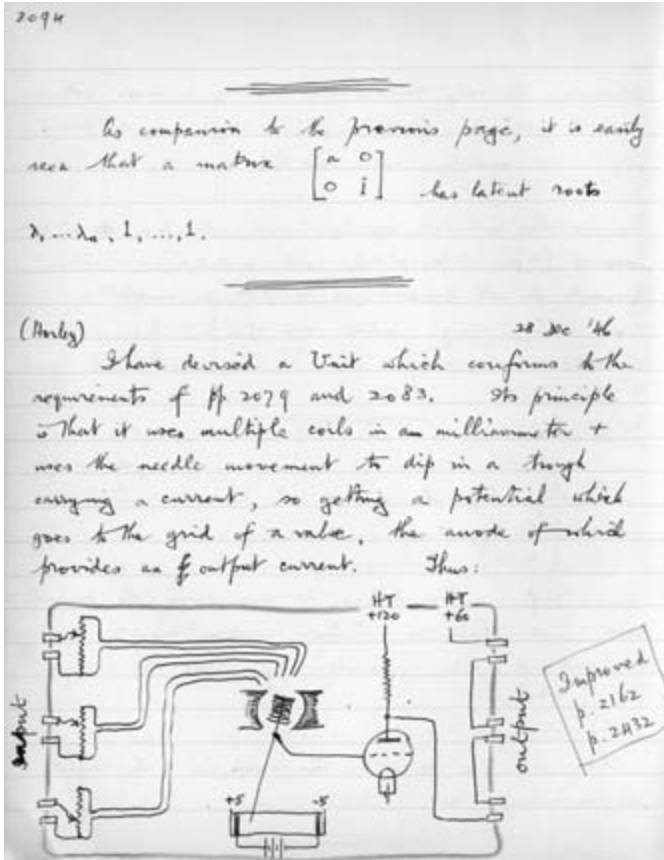 2094
As companion to the previous page, it is easily
seen that a matrix [a 0
0 1] has latent roots
λ, ... λn, 1, ..., 1.
(Horley) 28 Dec '46
I have devised a Unit which conforms to the
requirements of pp 2079 and 2083. Its principle
is that it uses multiple coils in a milliammeter +
uses the needle movement to dip in a trough
carrying a current, so getting a potential which
goes to the grid of a valve, the anode of which
provides an output current. Thus:
HT
+120
HT
+60
input
output
+5
-5
Improved
p. 2162
p. 2432